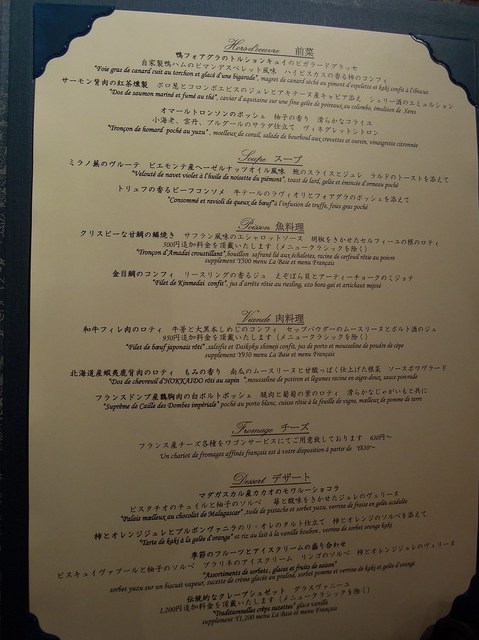 Hors d'oeuvre 前菜
鴨フォアグラのトルションキュイのビガラードグラッセ
自家製鴨ハムのピマンデスペレット風味 ハイビスカスの香る柿のコンフィ
"Foie gras de canard cuit au torchon et glacé d'une bigarade", magret de canard séché au piment d'espelette et kaki confit à l'ibiscus
サーモン背肉の紅茶燻製 ポロ葱とコロンボエピスのジュレとアキテーヌ産キャビア添え シェリー酒のエミュルション
"Dos de saumon mariné et fumé au thé", caviar d'aquitaine sur une fine gelée de poireaux au colombo, émulsion de Xeres
オマールトロンソンのポッシェ 柚子の香り 滑らかなコライユ
小海老、雲丹、ブルグールのサラダ仕立て ヴィネグレットシトロン
"Tronçon de homard poché au yuzu", moelleux de corail, salade de bourhoul aux crevettes et oursin, vinaigrette citronnée
Soupe スープ
ミラノ蕪のヴルーテ ピエモンテ産ヘーゼルナッツオイル風味 鮑のスライスとジュレ ラルドのトーストを添えて
"Velouté de navet violet à l'huile de noisette du piémont", toast de lard, gelée et émincée d'ormeau poché
トリュフの香るビーフコンソメ 牛テールのラヴィオリとフォアグラのポッシェを添えて
"Consommé et ravioli de queux de bœuf" à l'infusion de truffe, fous gras poché
Poisson 魚料理
クリスピーな甘鯛の鱗焼き サフラン風味のエシャロットソース 胡椒をきかせたセルフィーユの根のロティ
500円追加料金を頂戴いたします (メニュークラシックを除く)
"Tronçon d'Amadai croustillant", bouillon safrané lié aux échalotes, racine de cerfeuil rôtie au poivre
supplement ¥500 menu La Baie et menu Français
金目鯛のコンフィ リースリングの香るジュ えぞばら貝とアーティーチョークのミジョテ
"Filet de Kinmedai confit", jus d'arrêts rôtie au riesling, ezo bora-gai et artichaut mijoté
Viande 肉料理
和牛フィレ肉のロティ 牛蒡と大黒本しめじのコンフィ セップパウダーのムースリーヌとポルト酒のジュ
950円追加料金を頂戴いたします (メニュークラシックを除く)
"Filet de bœuf japonais rôti", salsifis et Daikoku shimeji confit, jus de porto et mousseline de poudre de cèpe
supplement ¥950 menu La Baie et menu Français
北海道産蝦夷鹿背肉のロティ もみの香り 南瓜のムースリーヌと甘酸っぱく仕上げた根菜 ソースポワヴラード
"Dos de chevreuil d'HOKKAIDO rôti au sapin", mousseline de potiron et légumes racine en aigre-doux, sauce poivrade
フランスドンブ産鶉胸肉の白ポルトポッシェ 腿肉と葡萄の実のロティ 滑らかなじゃがいもと共に
"Suprême de Caille des Dombes impériale" poché au porto blanc, cuisse rôtie à la feuille de vigne, moelleux de pomme de terre
Fromage チーズ
フランス産チーズ各種をワゴンサービスにてご用意致しております 630円~
Un chariot de fromages affinés français est à votre disposition à partir de ¥630~
Dessert デザート
マダガスカル産カカオのモワルーショコラ
ピスタチオのチュイルと柚子のソルベ 苺と酸味をきかせたジュレのヴェリーヌ
"Palais mœlleux au chocolat de Malagascar", tuile de pistache et sorbet yuzu, verrine de fraise en gelée acidulée
柿とオレンジジュレとブルボンヴァニラのリ・オレのタルト仕立て 柿とオレンジのソルベを添えて
"Tarte de kaki à la gelée d'orange" et riz au lait à la vanille bourbon, verrine de sorbet orange kaki
季節のフルーツとアイスクリームの盛り合わせ
ビスキュイヴァプールと柚子のソルベ プラリネのアイスクリーム リンゴのソルベ 柿とオレンジジュレのヴェリーヌ
"Assortiments de sorbets, glaces et fruits de saison"
sorbet yuzu sur un biscuit vapeur, recette de crème glacée en praliné, sorbet pomme et verrine de kaki et gelée d'orange
伝統的なクレープシュゼット グラスヴァニーユ
1,200円追加料金を頂戴いたします (メニュークラシックを除く)
"Traditionnelles crêpe suzettes" glace vanille
supplement ¥1,200 menu La Baie et menu Français